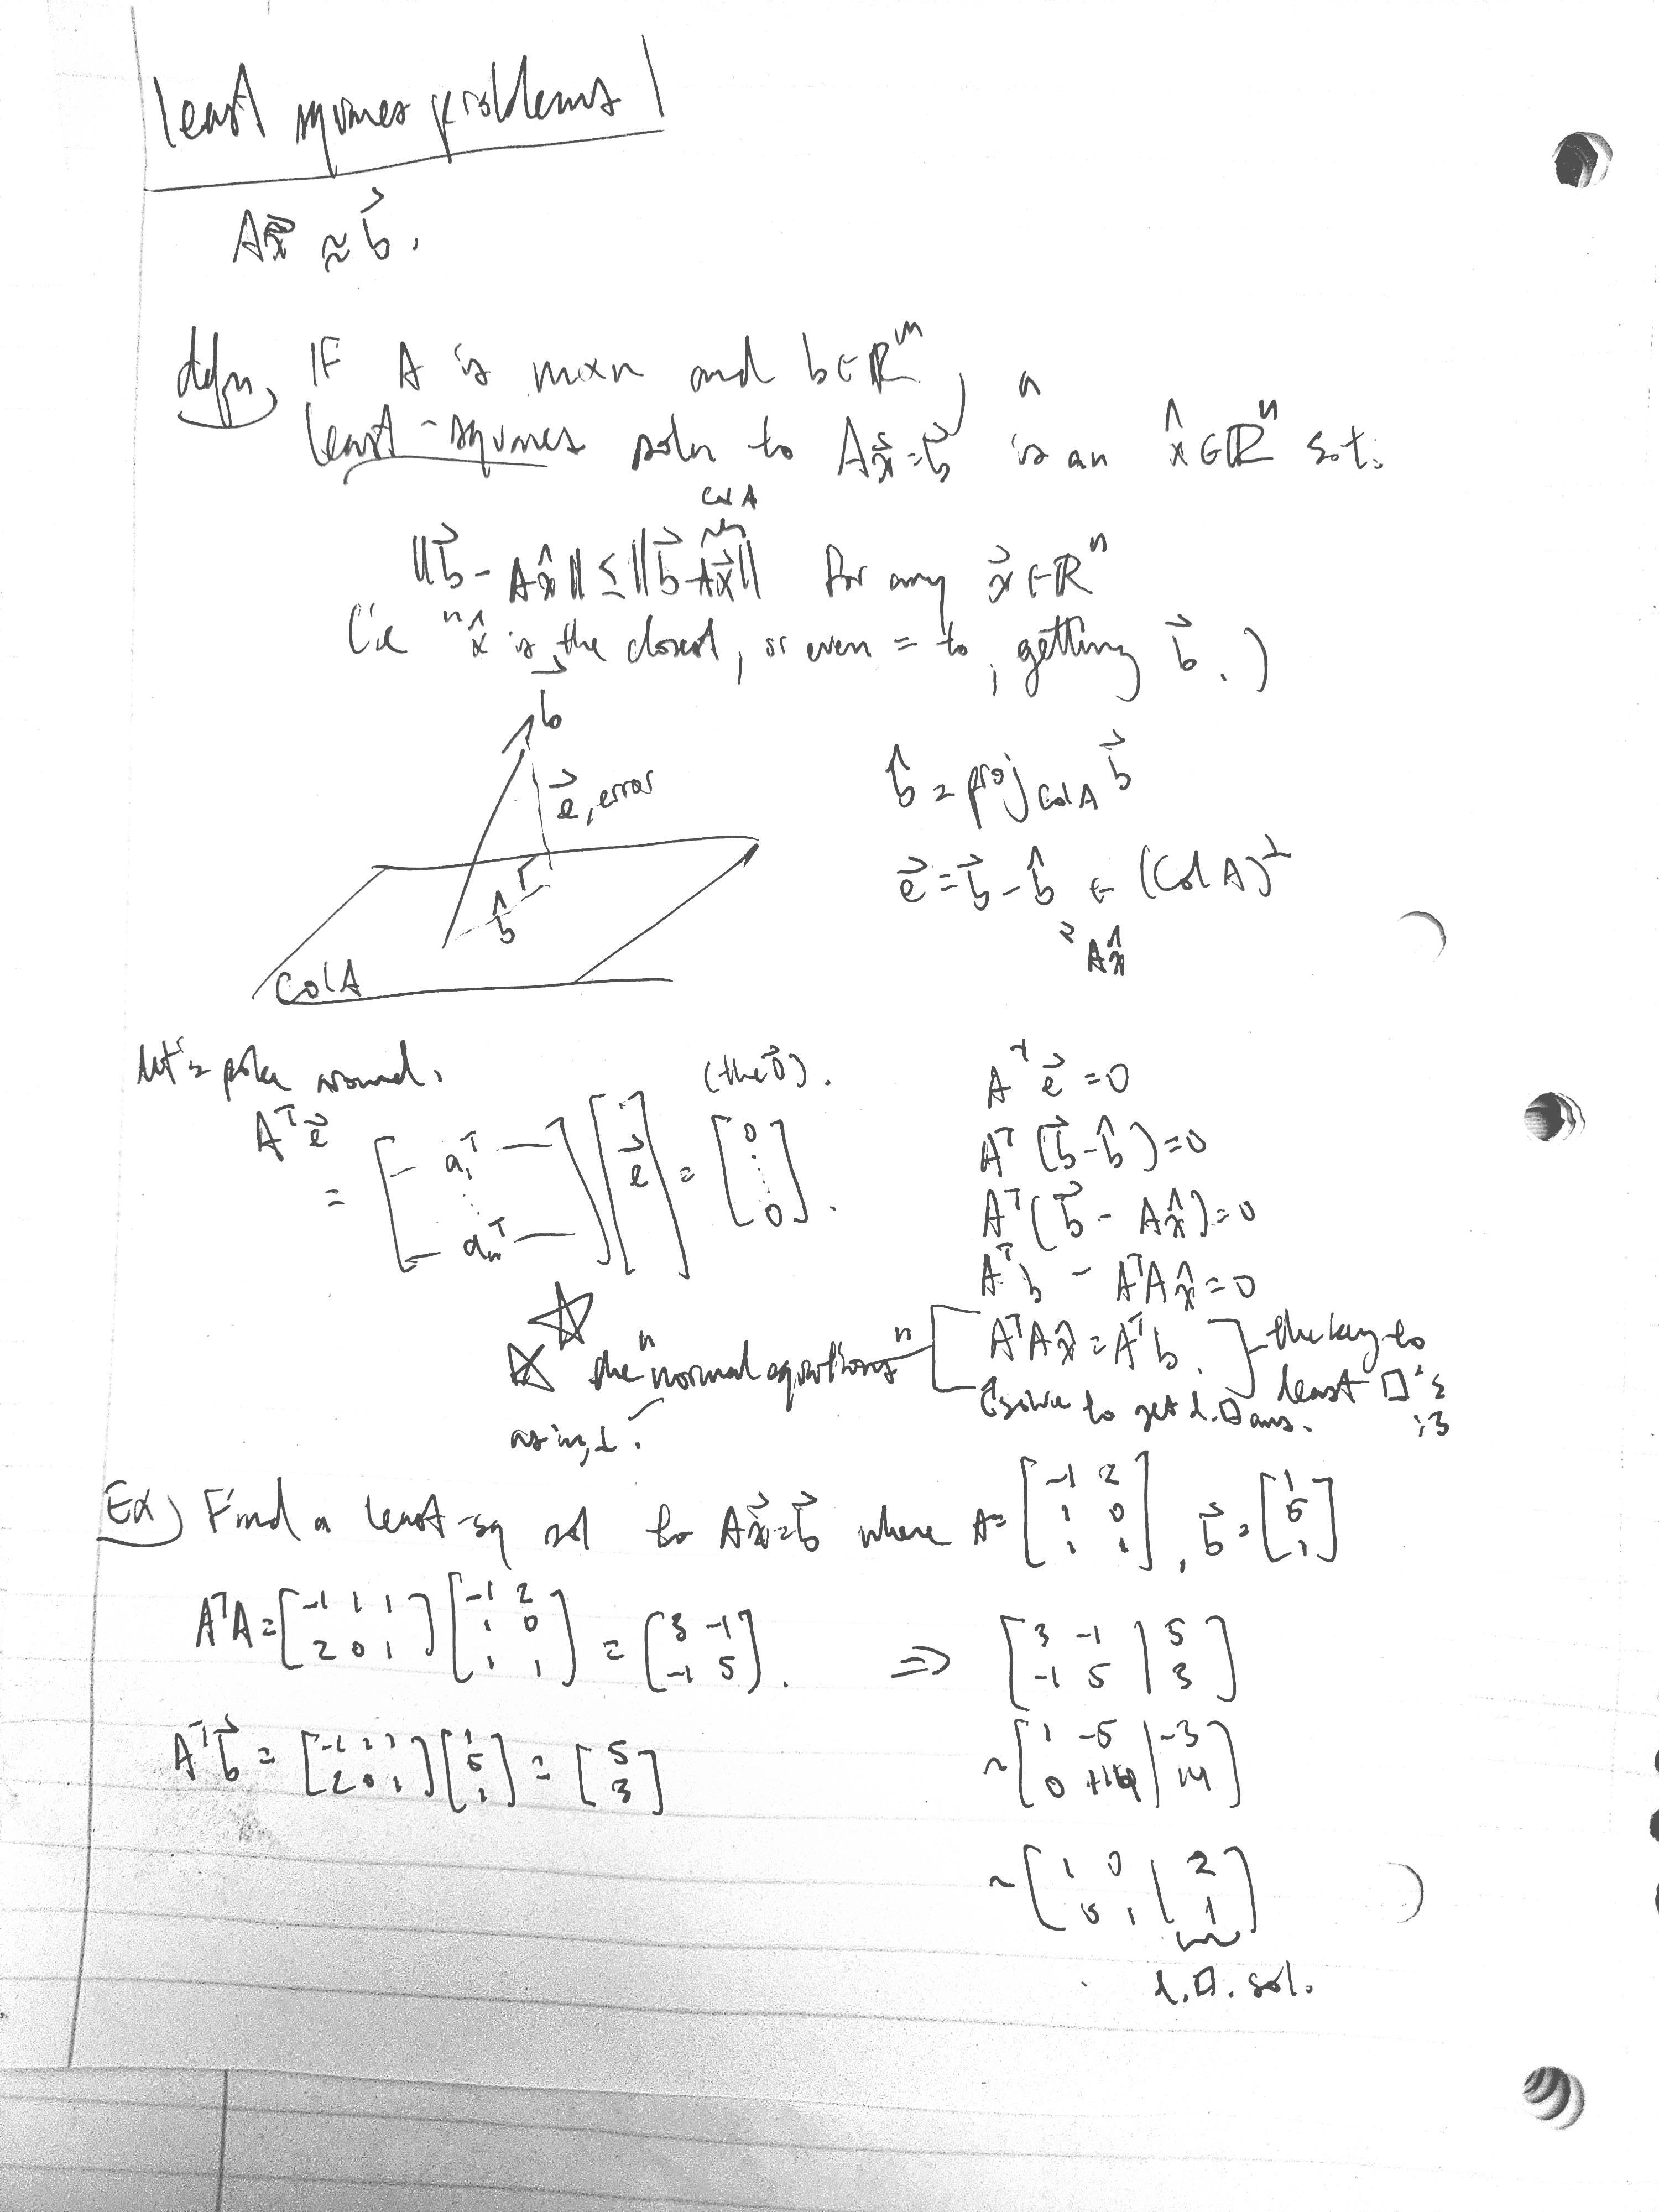 least squares problems
Ax⃗ ≈ b⃗.
defn, IF A is mxn and b∈ℝᵐ, a
least-squares soln to Ax⃗=b⃗ is an x̂∈ℝⁿ s.t.
Col A
||b⃗ - Ax̂|| ≤ ||b⃗ - Ax⃗|| for any x⃗∈ℝⁿ
(ie "x̂ is the closest, or even = to, getting b⃗.)
b⃗
e⃗, error
b̂
Col A
b̂ = proj Col A b⃗
e⃗ = b⃗ - b̂ ∈ (Col A)^⊥
= Ax̂
let's poke around.
(the 0⃗).
Aᵀe⃗
= [— a₁ᵀ — ⋮ — aₙᵀ —] [e⃗] = [0 ⋮ 0].
Aᵀe⃗ = 0
Aᵀ(b⃗ - b̂) = 0
Aᵀ(b⃗ - Ax̂) = 0
Aᵀb - AᵀAx̂ = 0
☆ ☆ the "normal equations"
as in, ⊥.
AᵀAx̂ = Aᵀb. } the key to least □'s :3
solve to get l.□ ans.
Ex) Find a least-sq sol to Ax⃗=b⃗ where A= [-1 2; 1 0; 1 1], b⃗ = [1; 5; 1]
AᵀA = [-1 1 1; 2 0 1] [-1 2; 1 0; 1 1] = [3 -1; -1 5].
Aᵀb⃗ = [-1 1 1; 2 0 1] [1; 5; 1] = [5; 3]
⇒ [3 -1 | 5; -1 5 | 3]
~ [1 -5 | -3; 0 +14 | 14]
~ [1 0 | 2; 0 1 | 1]
l.□. sol.